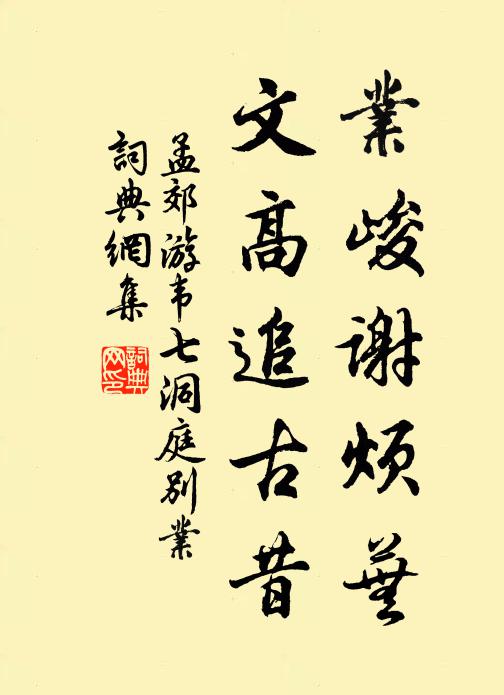 業峻謝煩蕪
文高追古昔
孟郊游韦七洞庭別業
詞典網集
詞典
网印